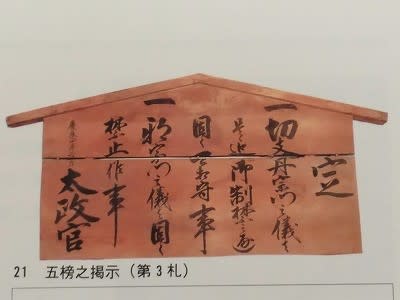 定
一切支丹宗門之儀は
是迄御制禁之通
固く可相守事
一邪宗門之儀は固く
禁止候事
太政官
21 五榜之掲示（第3札）